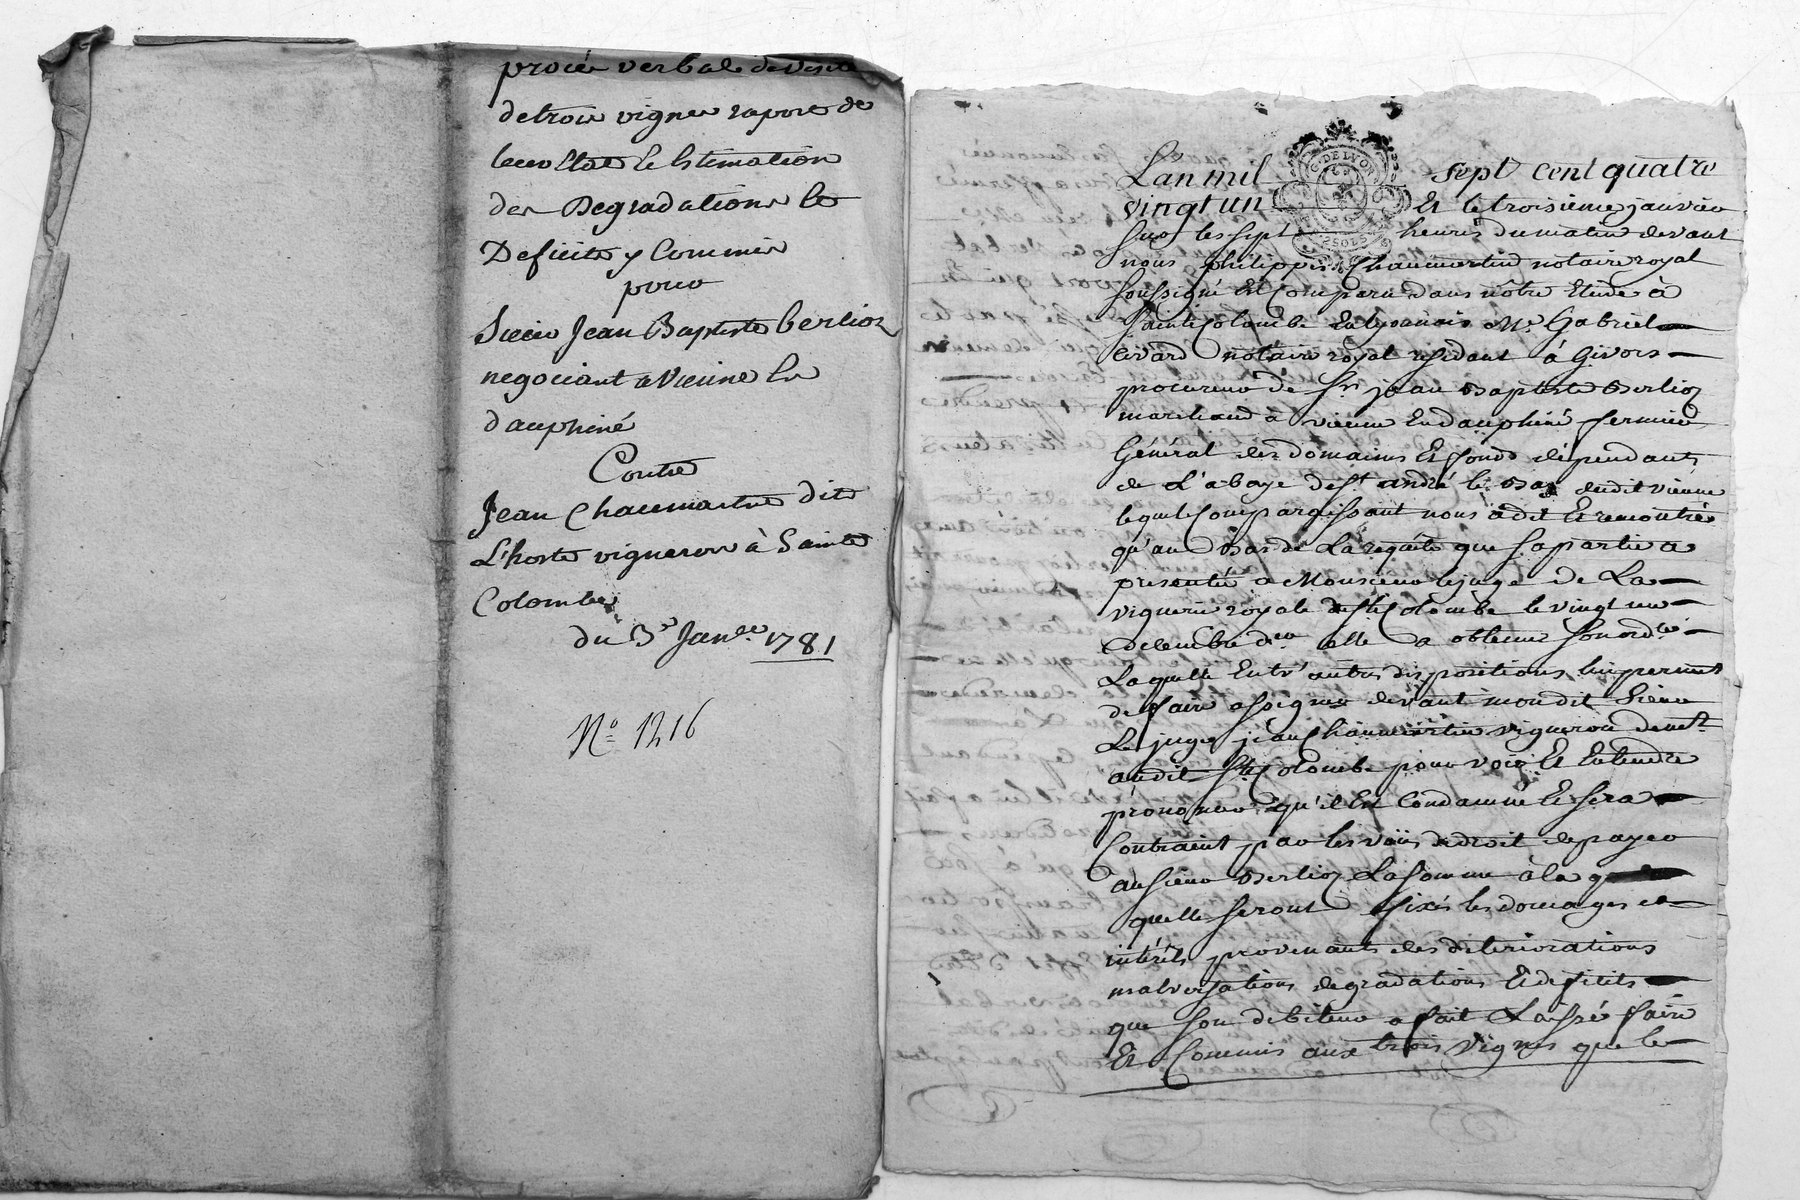 procès verbal de visite
de trois vignes raport de
leur Etat et Estimation
des Degradations et
Deficits y Commis
pour
Sieur Jean Baptiste berlioz
negociant a Vienne En
dauphiné
Contre
Jean Chaumartin dit
L'hoste vigneron à Sainte
Colombe
du 3e Janer 1781
No 1216
G. DE LYON
2 SOLS
L'an mil sept cent quatre
vingt un Et le troisieme janvier
sur les sept heures du matin devant
nous philippe Chaumartin notaire royal
soussigné Et Comparu dans nôtre Etude à
Sainte Colombe En lyonnois Me Gabriel
notaire royal residant à Givors
procureur de Sr jean Baptiste Berlioz
marchand à vienne En dauphiné fermier
Général des domaines Et fonds dépendants
de L'abaye de St andré le Bas dudit vienne
lequel Comparoissant nous a dit Et remontré
qu'au Bas de La requête que sa partie a
presentée a Monsieur le juge de La
viguerie royale de Ste Colombe le vingt un
decembre der elle a obtenu son ordce
Laquelle Entr'autres dispositions lui permet
de faire assigner devant mondit Sieur
Le juge jean Chaumartin vigneron demt
audit Ste Colombe pour voir Et Entendre
prononcer qu'il Est Condamné Et sera
Contraint par les voies de droit de payer
au sieur Berlioz La somme à la
quelle seront fixés les domages et
intérêts provenants des deteriorations
malversations degradations Et deficits
que son debiteur a fait Laissé faire
Et Commis aux trois Vignes que le